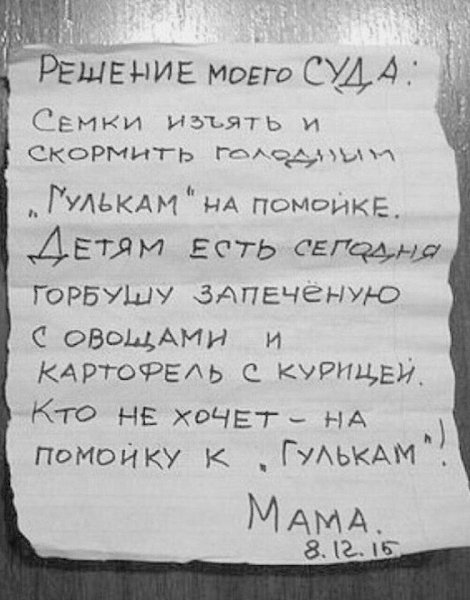 РЕШЕНИЕ МОЕГО СУДА:
СЕМКИ ИЗЪЯТЬ И
СКОРМИТЬ ГОЛОДНЫМ
„ГУЛЬКАМ" НА ПОМОЙКЕ.
ДЕТЯМ ЕСТЬ СЕГОДНЯ
ГОРБУШУ ЗАПЕЧЁНУЮ
С ОВОЩАМИ И
КАРТОФЕЛЬ С КУРИЦЕЙ.
КТО НЕ ХОЧЕТ – НА
ПОМОЙКУ К „ГУЛЬКАМ"!
МАМА.
8.12.15